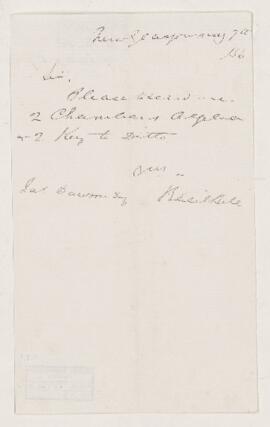 New Glasgow May 7th
/56
Sir,
Please send me
2 Chambers Algebra
& 2 Key to Ditto
Yours
Jas Dawson Esq